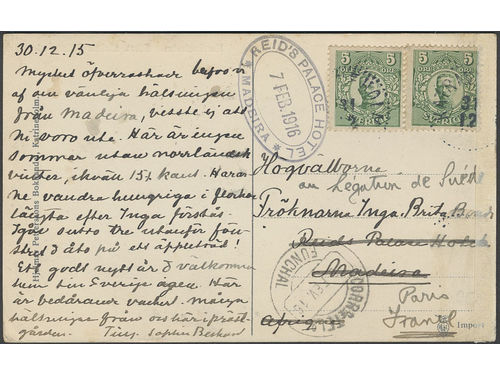 30.12.15
Mycket öfverraskad
af den vänliga hälsningen
från Madeira, visste ej att
Ni voro ute. Här är ingen
sommar utan norrländsk
vinter, ikväll 15 kallt. Hara-
ne vandra hungriga i
längta efter Inga förstås.
Igår sutto tre utanför fön-
stred o åto på ett äppelträd!
Ett godt nytt år o välkomna
hem till Sverige igen. Här
är bedårande vackert många
hälsningar från oss här i präst-
gården.
REID'S PALACE HOTEL
7 FEB. 1916
* MADEIRA *
5 5
ÖRE
SVERIGE
31
12
Högvälborna
au Légation de Suède
Fröknarna Inga, Brita
Reids Palace Hotel
Madeira
Afrika
Paris
CORREIO
FUNCHAL
Import